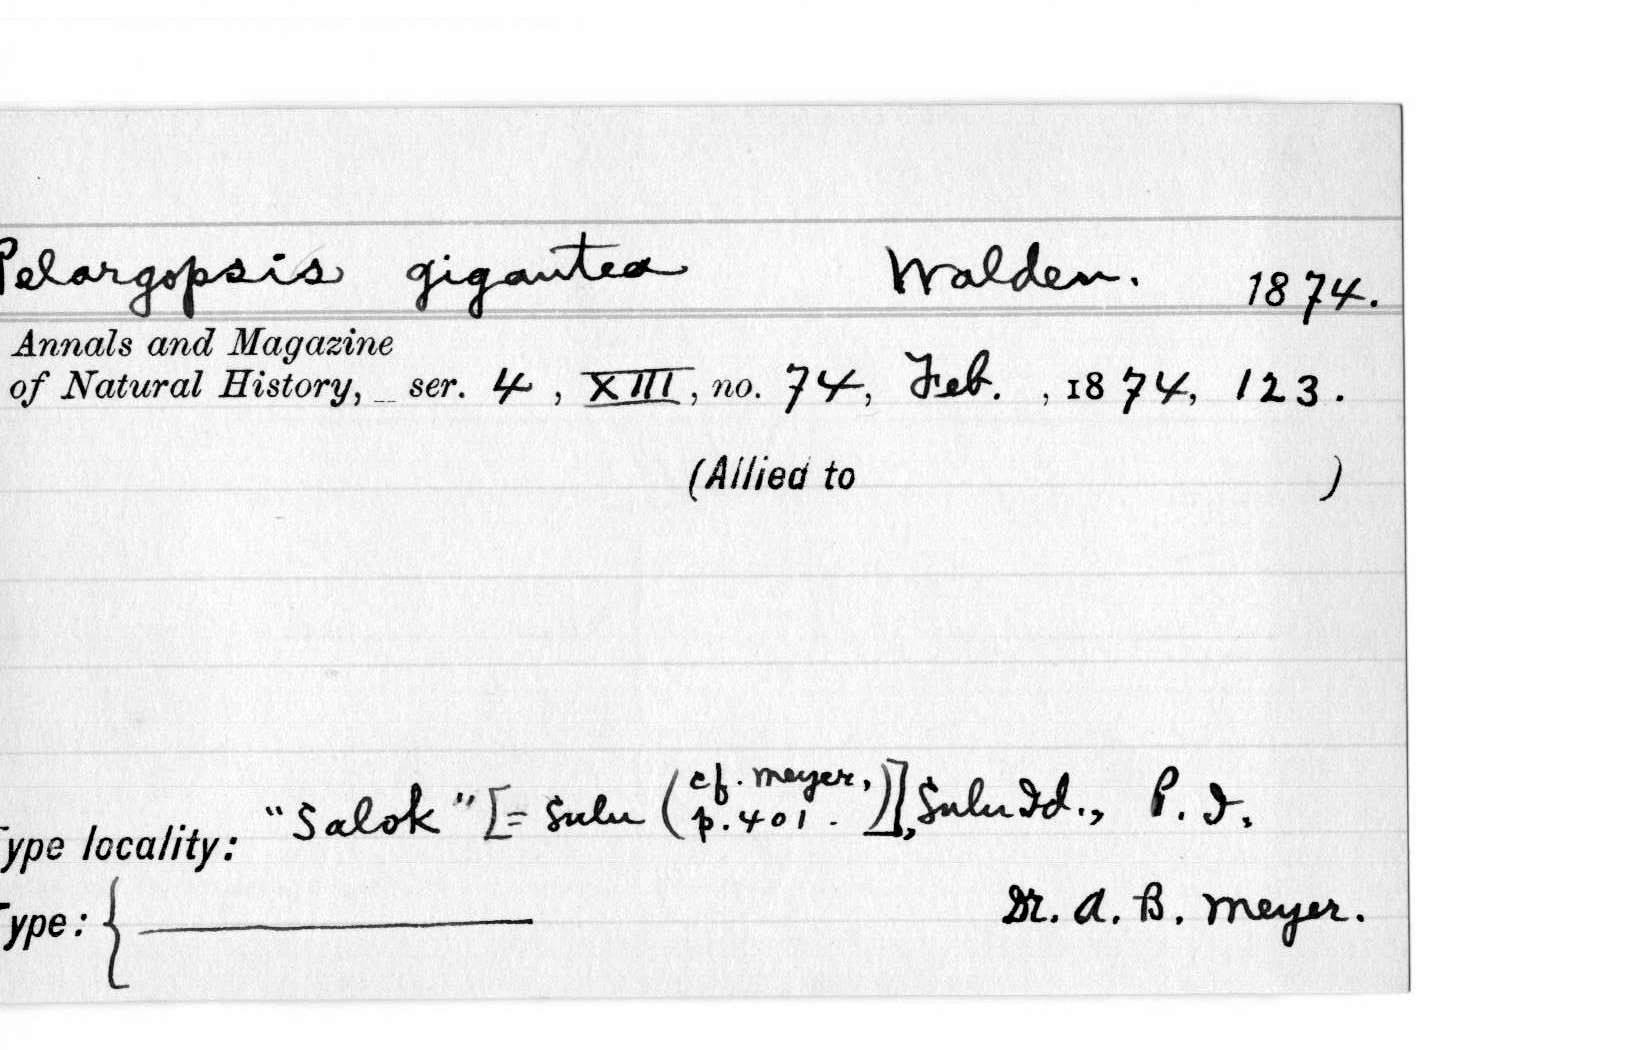 Pelargopsis gigantea Walden. 1874.
Annals and Magazine
of Natural History, ser. 4, XIII, no. 74, Feb. , 1874, 123.
(Allied to )
"Salok" [= Sulu (cf. Meyer, p. 401.)], Sulu Id., P. I.
Type locality:
Type: { Dr. A. B. Meyer.